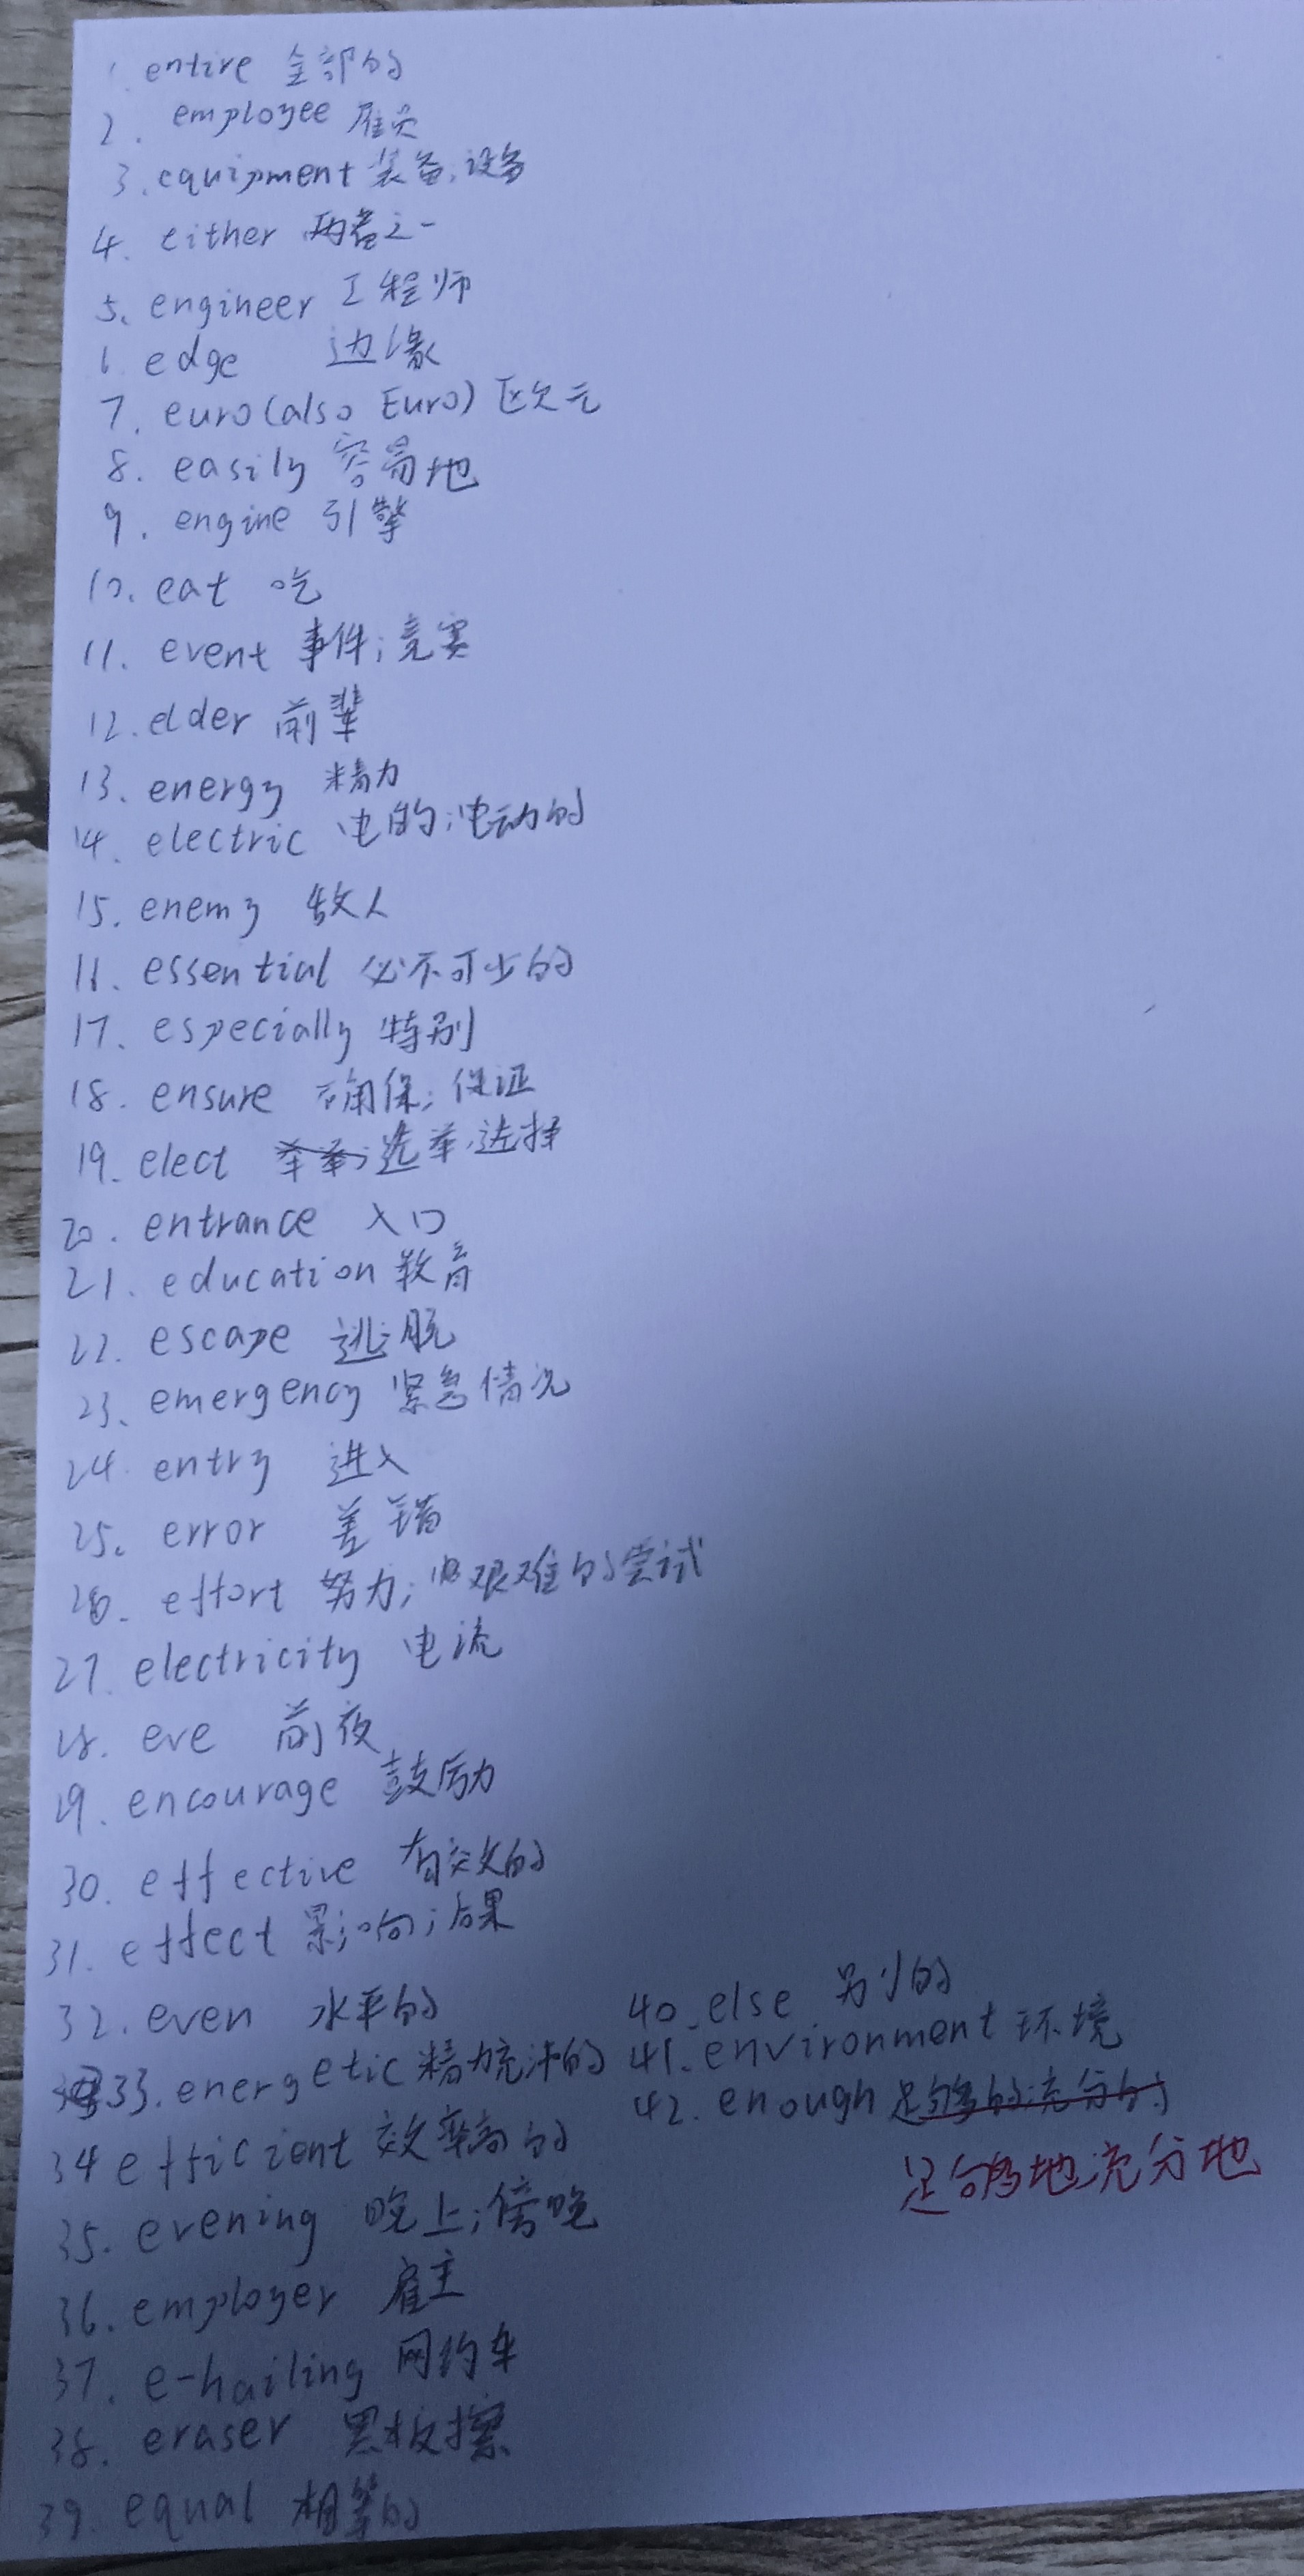 1. entire 全部的
2. employee 雇员
3. equipment 装备,设备
4. either 两者之一
5. engineer 工程师
6. edge 边缘
7. euro(also Euro) 欧元
8. easily 容易地
9. engine 引擎
10. eat 吃
11. event 事件;竞赛
12. elder 前辈
13. energy 精力
14. electric 电的;电动的
15. enemy 敌人
16. essential 必不可少的
17. especially 特别
18. ensure 确保;保证
19. elect 选举,选择
20. entrance 入口
21. education 教育
22. escape 逃脱
23. emergency 紧急情况
24. entry 进入
25. error 差错
26. effort 努力;艰难的尝试
27. electricity 电流
28. eve 前夜
29. encourage 鼓励
30. effective 有效的
31. effect 影响;后果
32. even 水平的
33. energetic 精力充沛的
34 efficient 效率高的
35. evening 晚上;傍晚
36. employer 雇主
37. e-hailing 网约车
38. eraser 黑板擦
39. equal 相等的
40. else 别的
41. environment 环境
42. enough 足够的充分的
足够地充分地